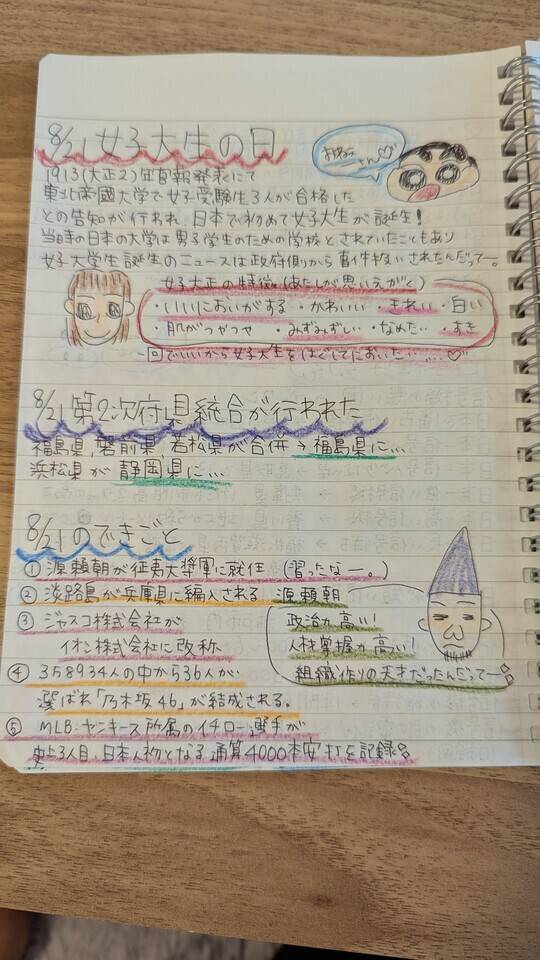 8/21 女子大生の日
おねいさ〜ん♡
1913(大正2)年官報発表にて
東北帝國大学で女子受験生3人が合格した
との告知が行われ、日本で初めて女子大生が誕生!
当時の日本の大学は男子学生のための学校とされていたこともあり
女子大学生誕生のニュースは政府側から事件扱いされたんだって〜。
女子大正の特徴(あたしが思いえがく)
・いいにおいがする ・かわいい ・きれい ・白い
・肌がつやつや ・みずみずしい ・なめたい ・すき
一回でいいから女子大生をはぐしてにおいたい……♡
8/21 第2次府県統合が行われた
福島県、磐前県、若松県が合併→福島県に…
浜松県が静岡県に…
8/21のできごと
① 源頼朝が征夷大将軍に就任(習ったなー。)
② 淡路島が兵庫県に編入される
③ ジャスコ株式会社が
イオン株式会社に改称
源頼朝
政治力高い!
人材掌握力高い!
組織作りの天才だったんだって〜
④ 358934人の中から36人が
選ばれ「乃木坂46」が結成される。
⑤ MLB・ヤンキース所属のイチロー選手が
史上3人目、日本人初となる通算4000本安打を記録